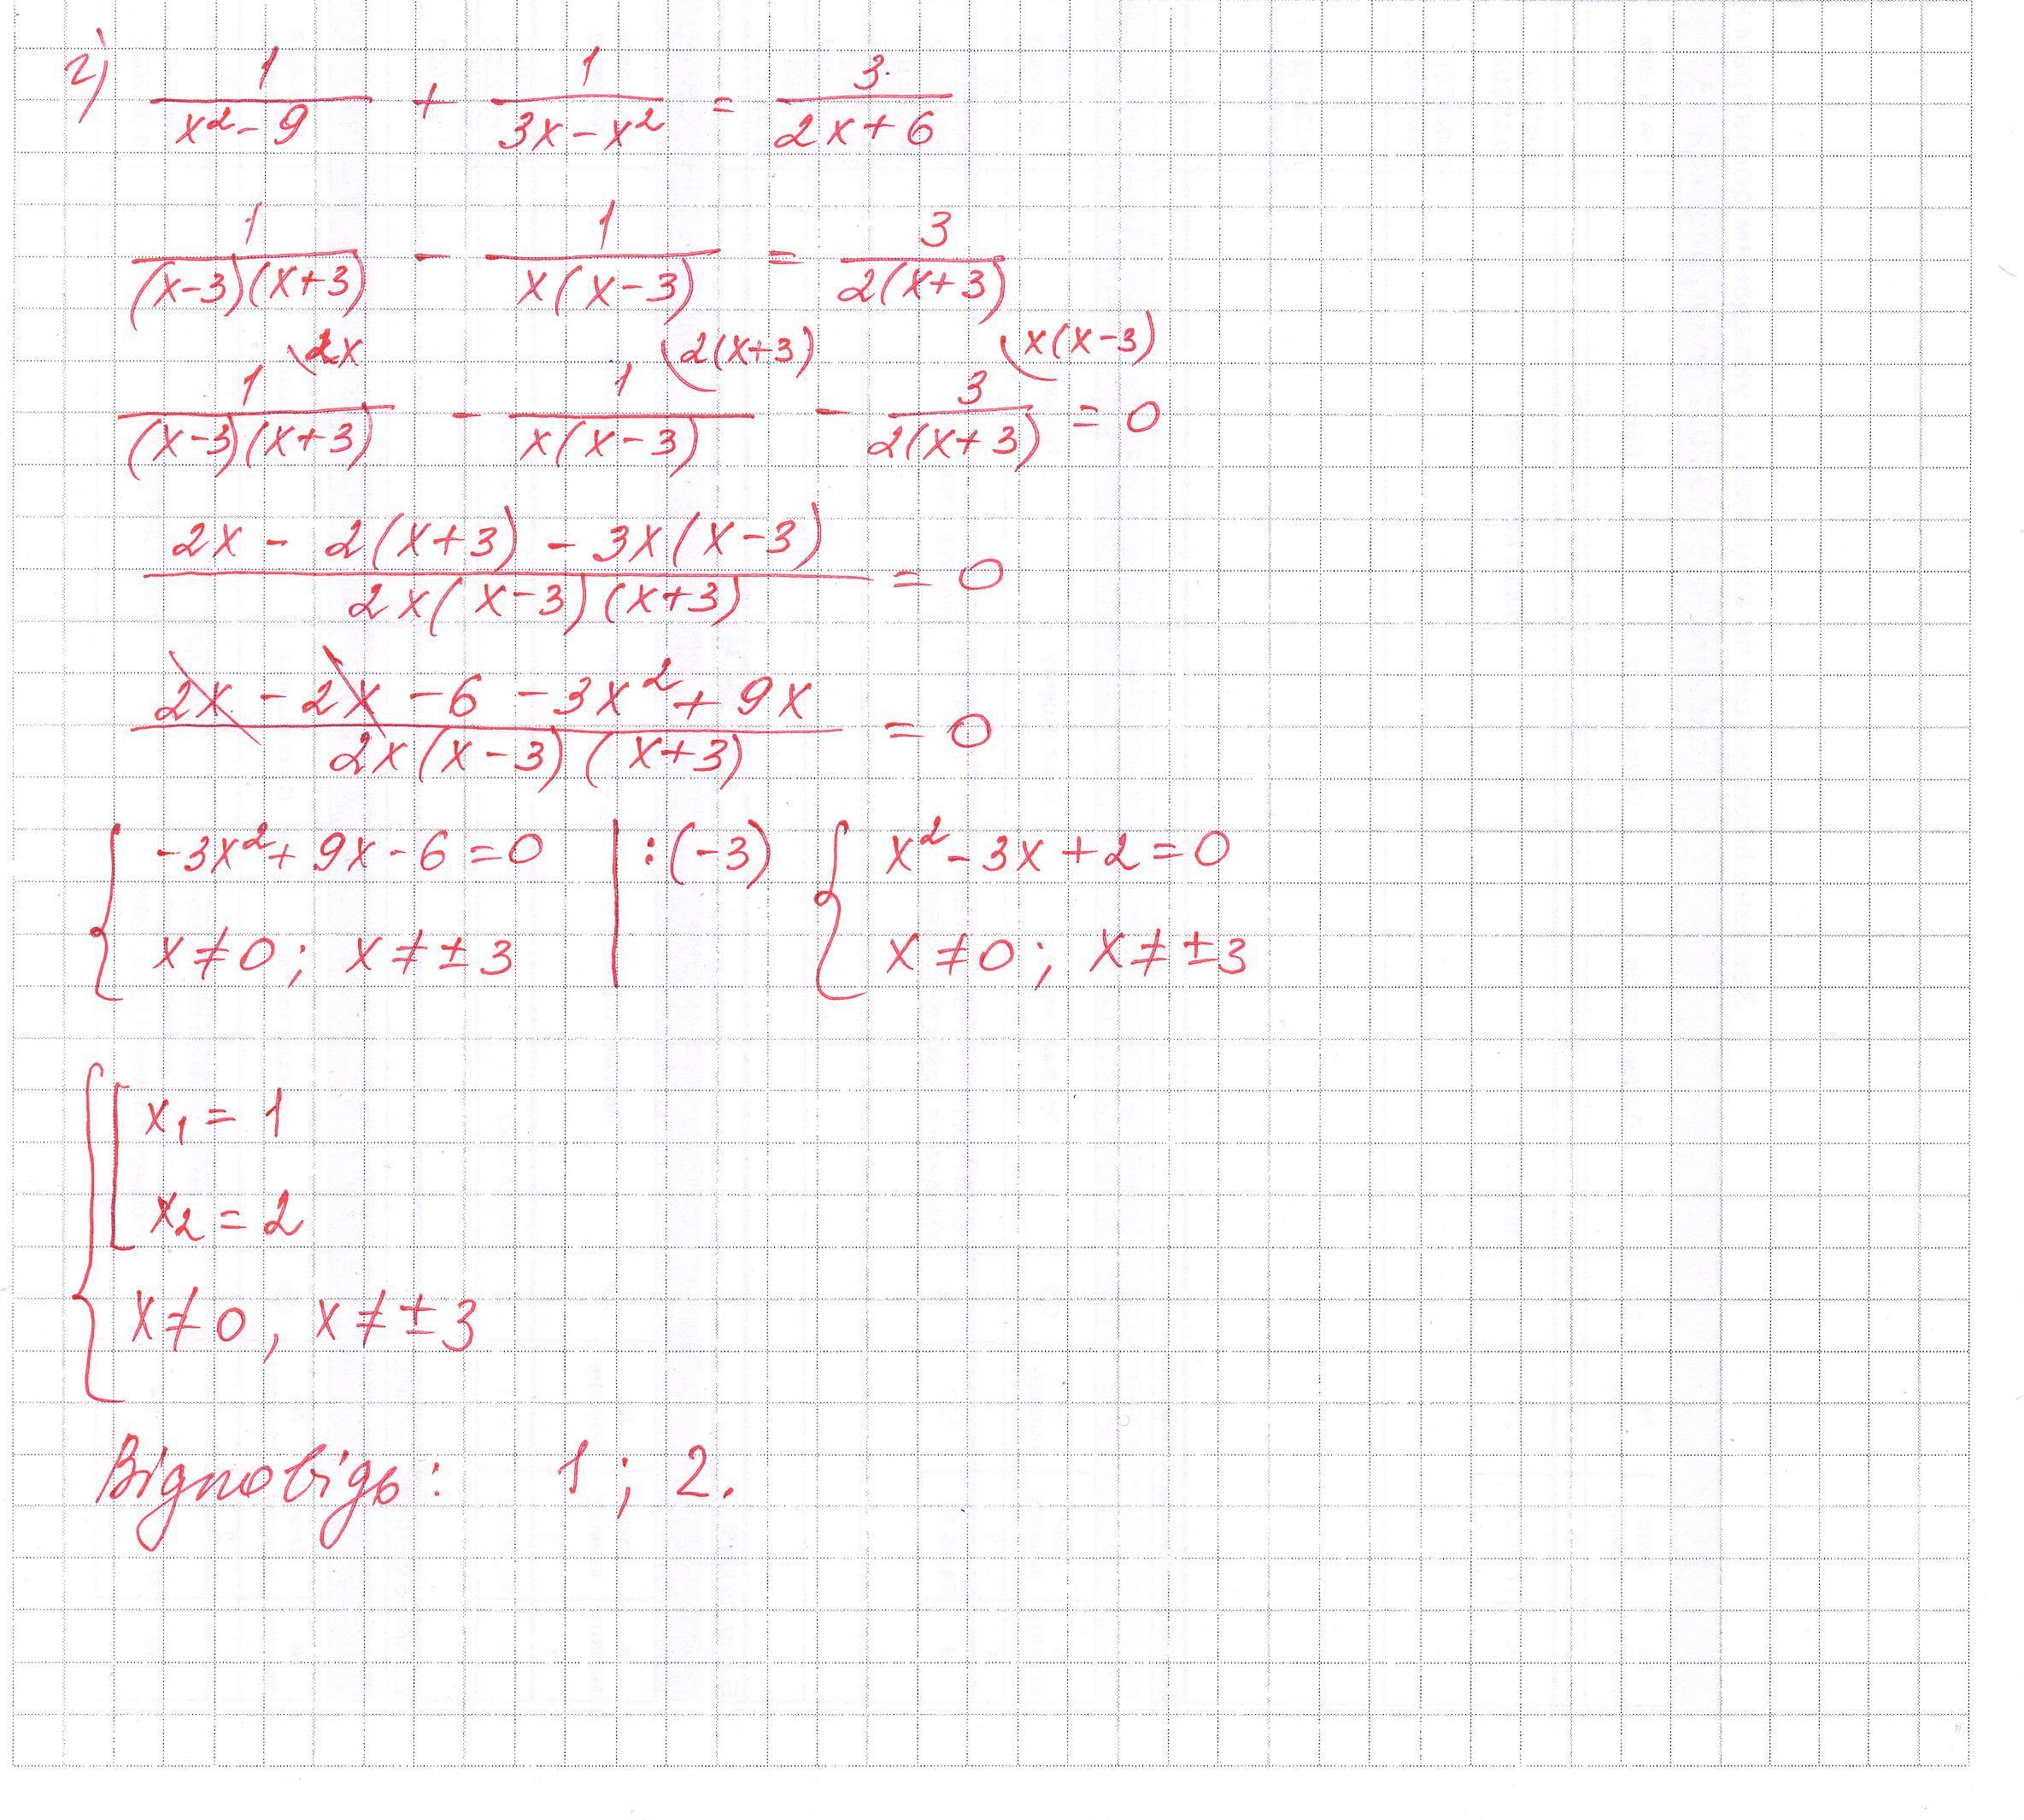 г) 1/(x² - 9) + 1/(3x - x²) = 3/(2x + 6)
1/((x-3)(x+3)) - 1/(x(x-3)) = 3/(2(x+3))
1/((x-3)(x+3)) \2x - 1/(x(x-3)) \2(x+3) - 3/(2(x+3)) \x(x-3) = 0
(2x - 2(x+3) - 3x(x-3))/(2x(x-3)(x+3)) = 0
(2x - 2x - 6 - 3x² + 9x)/(2x(x-3)(x+3)) = 0
{ -3x² + 9x - 6 = 0 | :(-3) { x² - 3x + 2 = 0
x ≠ 0; x ≠ ±3 x ≠ 0; x ≠ ±3
{ [ x₁ = 1
x₂ = 2
x ≠ 0, x ≠ ±3
Відповідь: 1; 2.